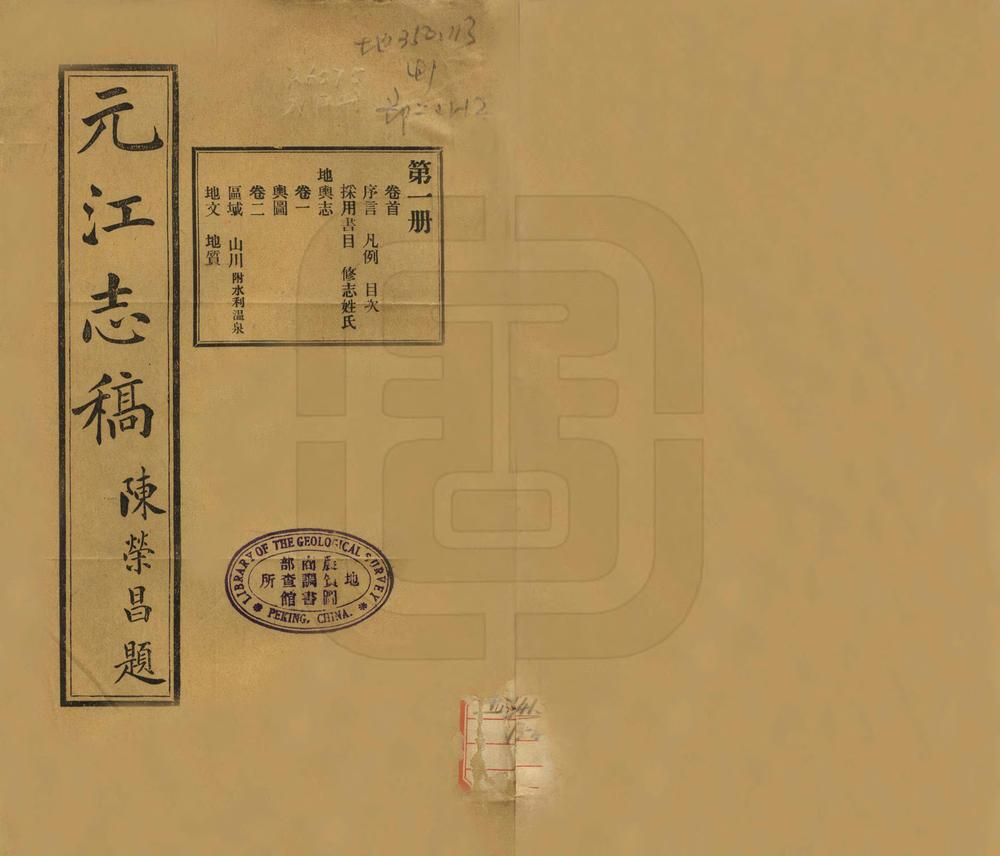 元江志稿
陳榮昌題
第一册
卷首
序言 凡例 目次
採用書目 修志姓氏
地輿志
卷一
輿圖
卷二
區域 山川附水利溫泉
地文 地質
地350.113
LIBRARY OF THE GEOLOGICAL SURVEY
PEKING, CHINA.